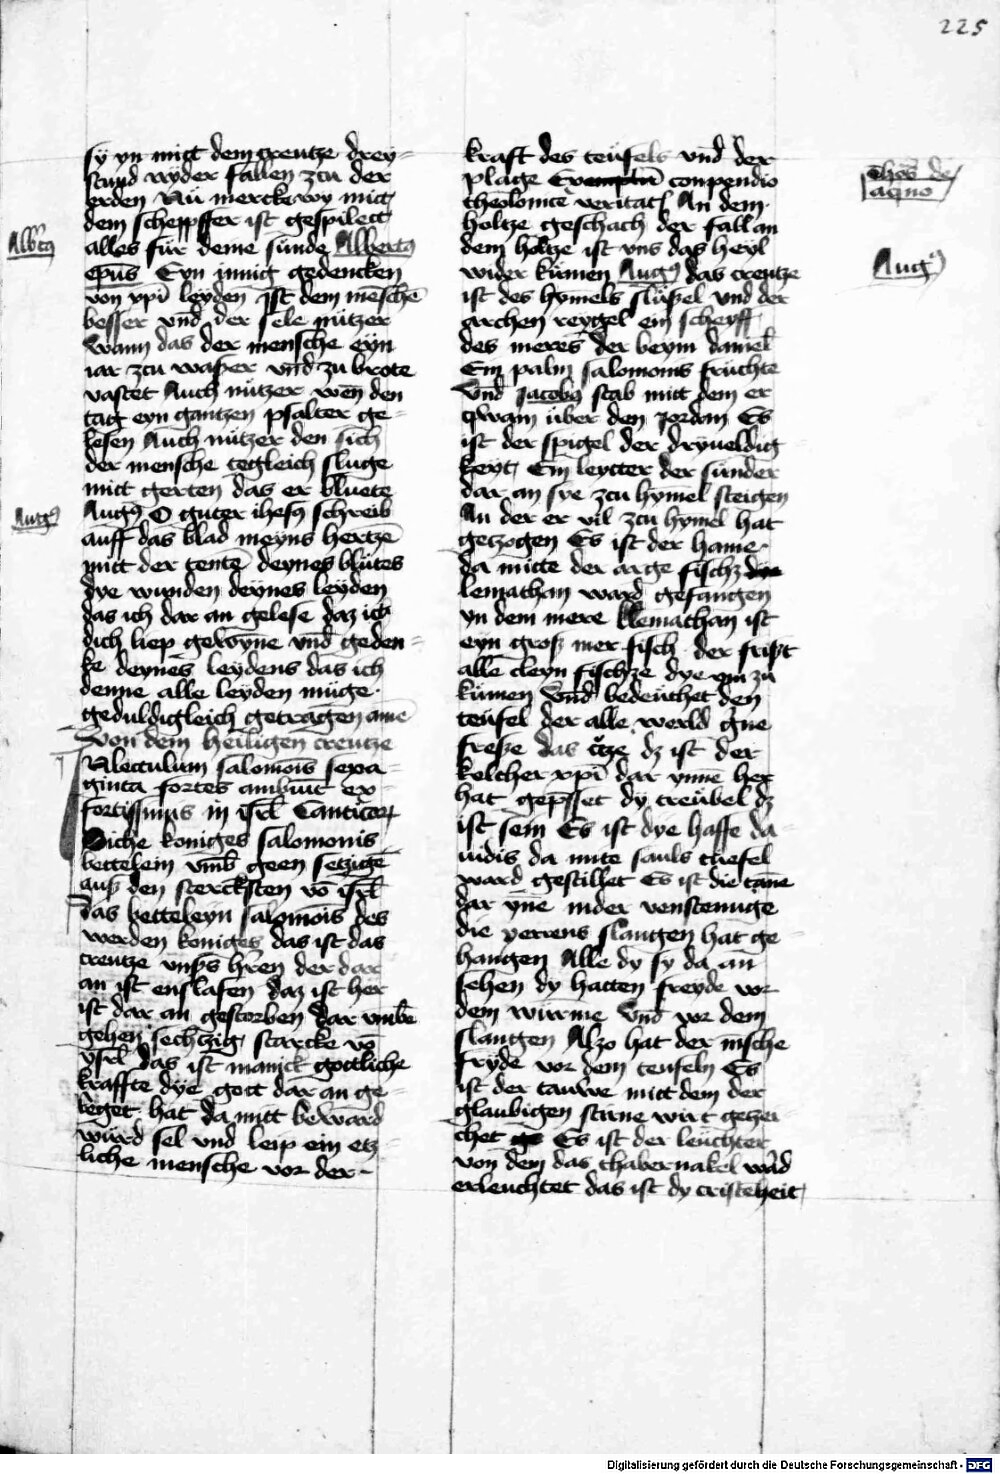 225
sy yn mitt dem creutze drey=
stund nyder fallen zcu der
erden Nü mercke wy mitt
dem scheppffer ist gespilett
alles für deine sünde Albertꝯ
ep̄us Eyn innig gedencken
von xp̄i leyden ist dem mēschē
besser vnd der sele nützer
Wann das der mensche eyn
iar zcu waßer vnd zu brote
vastet Auch nützer wen den
tag eyn gantzen psalter ge=
lesen Auch nützer den sich
der mensche tegleich sluge
mitt gerten das er bluete
Augꝯ O guter ihesꝯ schreib
auff das blad meyns hertzē
mitt der tente deynes blutes
dye wunden deynes leyden
das ich dar an gelese daz ich
dich liep gewynne vnd geden=
ke deynes leydens das ich
denne alle leyden müge
geduldigleich getragen amē
Von dem heiligen creutze
lectulum salomōis sexa=
ginta fortes ambiūt ex
fortissimis in isrl̄ Canticoꝝ
Siche koniges salomonis
bettelein vmb geen setzige
auß den stercksten vō isrl̄
das betteleyn salomōis des
werden koniges das ist das
creutze vnßs hr̄en der dar
an ist enslafen daz ist her
ist dar an gestorben dar vmbe
gehen sechtzig starcke vō
ysrl̄ das ist manick gottliche
kraffte dye gott dar an ge=
leget hat da mitt bedward
würd sel vnd leip ein etz=
liche mensche vor der
kraft des teüfels vnd der
plage conpendio
theoloice veritatꝭ An dem
holtze geschach der fall an
dem holtze ist vns das heyl
wider kümen Augꝯ das creutze
ist des hymels slüßel vnd der
archen reygel ein scheyff
des meres der beym daniel
Ein palm salomonis früchte
Vnd Jacobꝯ stab mitt dem er
qwam über den Jordom Es
ist der spigel der dryueldig=
keyt Ein leytter der sünder
dar an sye zcu hymel steigen
An der er vil zcu hymel hat
getzogen Es ist der hame
da mitte der arge fisch
lemathan ward gefangen
yn dem mere lemathan ist
eyn groß mer fisch der frißt
alle cleyn fischze dye ym zu
kümen Vnd bedeüchet den
teüfel der alle werld gne
freße das c̄tze dz ist der
kelcher xp̄i dar ynne her
hat gepsset dy treübel dz
ist sein Es ist dye haffe da=
uidis da mite sauls tuefel
ward gestillet Es ist die tāne
dar ynē in der venstenuge
die yerrens slangen hat ge=
hangen Alle dy sy da an
sehen dy hatten freyde vor
dem würme Vnd vor dem
slangen Alzo hat der mēsche
fryde vor dem teufeln Es
ist der tauwe mitt dem der
glaubigen stirne wirt getzei=
chet Es ist der leüchter
von dem das thabernakel wᵃd
erleuchtet das ist dy cristēheit
Albꝰtꝯ
Augꝯ
Thoꝭ de
aqno
Augꝯ
Digitalisierung gefördert durch die Deutsche Forschungsgemeinschaft - DFG